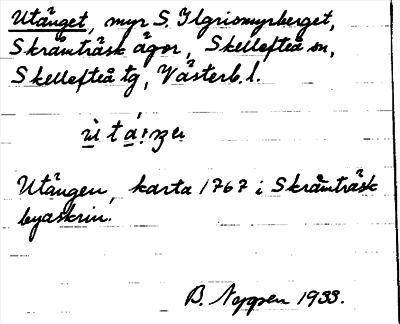 Utånget, myr S. Ilgrismyrberget,
Skråmträsk ägor, Skellefteå sn,
Skellefteå tg, Västerb. l.
Utången, karta 1767 i Skråmträsk
byaskrin.
B. 1933.